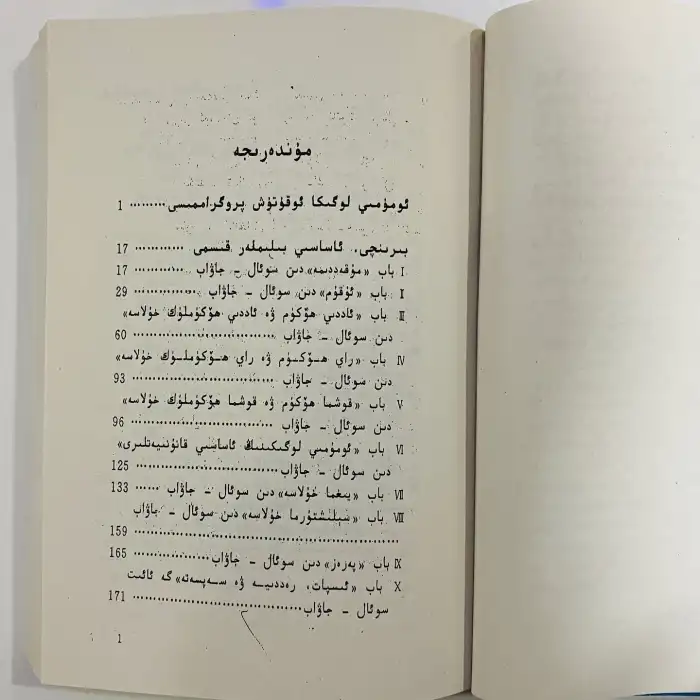 مۇندەرىجە
ئومۇمىي لوگىكا ئوقۇتۇش پروگراممىسى ········· 1
بىرىنچى، ئاساسىي بىلىملەر قىسمى ············ 17
I باب «مۇقەددىمە» دىن سوئال ـ جاۋاب ············ 17
II باب «ئۇقۇم» دىن سوئال ـ جاۋاب ············ 29
III باب «ئاددىي ھۆكۈم ۋە ئاددىي ھۆكۈملۈك خۇلاسە»
دىن سوئال ـ جاۋاب ···························· 60
IV باب «راي ھۆكۈم ۋە راي ھۆكۈملۈك خۇلاسە»
دىن سوئال ـ جاۋاب ···························· 93
V باب «قوشما ھۆكۈم ۋە قوشما ھۆكۈملۈك خۇلاسە»
دىن سوئال ـ جاۋاب ···························· 96
VI باب «ئومۇمىي لوگىكىنىڭ ئاساسىي قانۇنىيەتلىرى»
دىن سوئال ـ جاۋاب ···························· 125
VII باب «يىغما خۇلاسە» دىن سوئال ـ جاۋاب ······ 133
VIII باب «سېلىشتۇرما خۇلاسە» دىن سوئال ـ جاۋاب
···················································· 159
IX باب «پەرەز» دىن سوئال ـ جاۋاب ·················· 165
X باب «ئىسپات، رەددىيە ۋە سەپسەتە» گە ئائىت
سوئال ـ جاۋاب ·································· 171
1